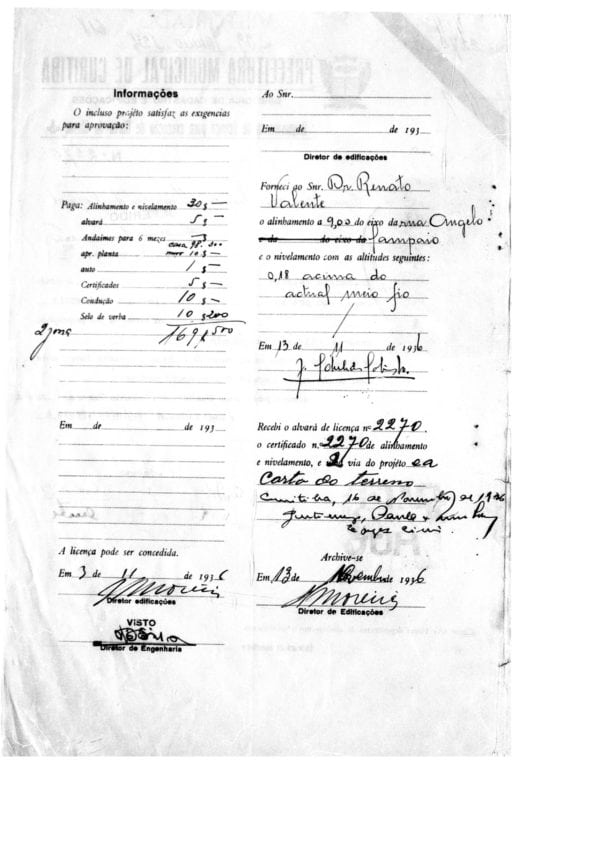 PREFEITURA MUNICIPAL DE CURITIBA
Informações
O incluso projéto satisfaz as exigencias
para aprovação:
Paga: Alinhamento e nivelamento 30$—
alvará 5$—
Andaimes para 6 mezes
apr. planta 10$—
auto 1$—
Certificados 5$—
Condução 10$—
Selo de verba 10$200
169$500
Em de de 193
A licença pode ser concedida.
Em 3 de 11 de 1936
Moreira
Diretor edificações
VISTO
Diretor de Engenharia
Ao Snr.
Em de de 193
Diretor de edificações
Forneci ao Snr. Dr. Renato
Valente
o alinhamento a 9,00 do eixo da rua Angelo
do do eixo do Sampaio
e o nivelamento com as altitudes seguintes:
0,18 acima do
actual meio fio
Em 13 de 11 de 1936
Recebi o alvará de licença nº 2270
o certificado n. 2270 de alinhamento
e nivelamento, e 2 via do projéto e a
Carta do terreno
Curitiba, 16 de Novembro de 1936
Archive-se
Em 13 de Novembro de 1936
Moreira
Diretor de Edificações